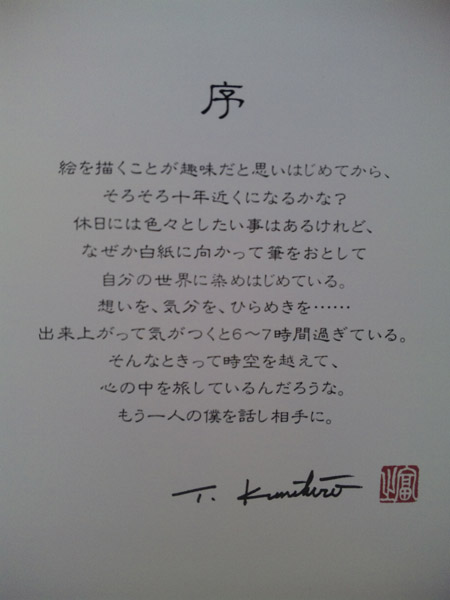 序
絵を描くことが趣味だと思いはじめてから、
そろそろ十年近くになるかな？
休日には色々としたい事はあるけれど、
なぜか白紙に向かって筆をおとして
自分の世界に染めはじめている。
想いを、気分を、ひらめきを……
出来上がって気がつくと6〜7時間過ぎている。
そんなときって時空を越えて、
心の中を旅しているんだろうな。
もう一人の僕を話し相手に。
T. Kunihiro